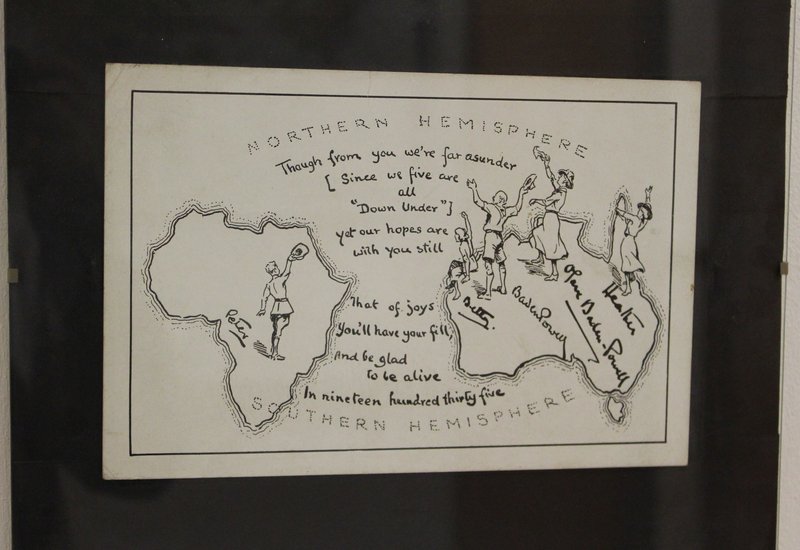 NORTHERN HEMISPHERE
Though from you we're far asunder
[Since we five are
all
"Down Under"]
yet our hopes are
with you still
That of joys
You'll have your fill,
And be glad
to be alive
In nineteen hundred thirty five
SOUTHERN HEMISPHERE
Peter
Betty.
Baden Powell
Olave Baden-Powell
Heather